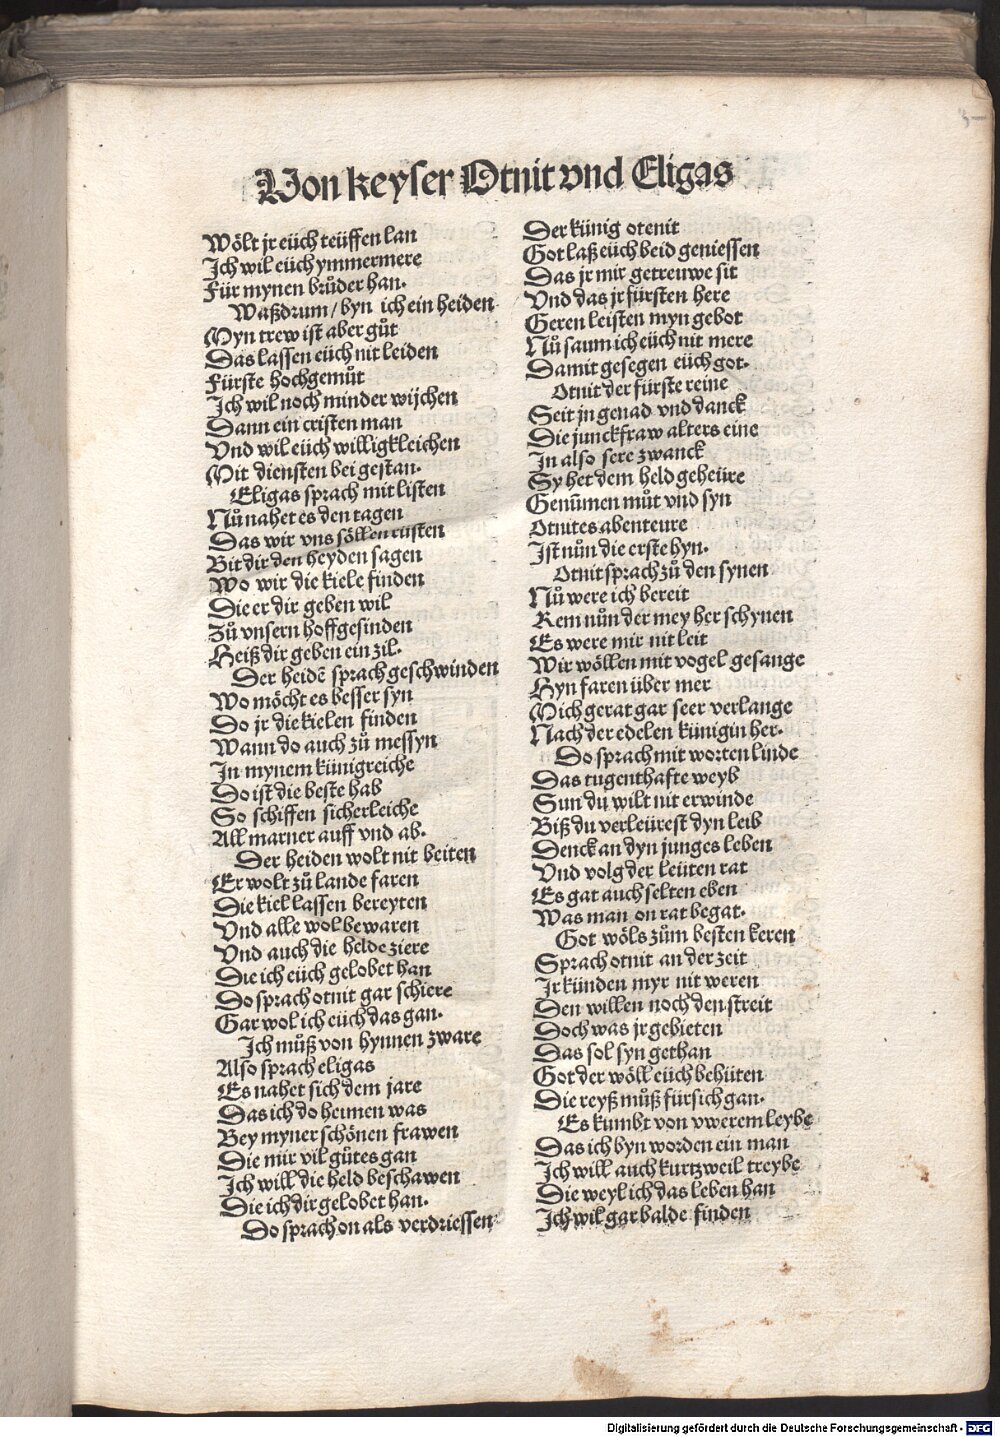 Von keyser Otnit vnd Eligas
Wölt jr eüch teüffen lan
Ich wil eüch ymmermere
Für mynen brůder han.
Waßdrum / byn ich ein heiden
Myn trew ist aber gůt
Das lassen eüch nit leiden
Fürste hochgemůt
Ich wil noch minder wijchen
Dann ein cristen man
Vnd wil eüch willigkleichen
Mit diensten bei gestan.
Eligas sprach mit listen
Nů nahet es den tagen
Das wir vns söllen rüsten
Bit dir den heyden sagen
Wo wir die kiele finden
Die er dir geben wil
Zů vnsern hoffgesinden
Heiß dir geben ein zil.
Der heidē sprach geschwinden
Wo möcht es besser syn
Do jr die kielen finden
Wann do auch zů messyn
In mynem künigreiche
Do ist die beste hab
So schiffen sicherleiche
All marner auff vnd ab.
Der heiden wolt nit beiten
Er wolt zů lande faren
Die kiel lassen bereyten
Vnd alle wol bewaren
Vnd auch die helde ziere
Die ich eüch gelobet han
Do sprach otnit gar schiere
Gar wol ich eüch das gan.
Ich můß von hynnen zware
Also sprach eligas
Es nahet sich dem jare
Das ich do heimen was
Bey myner schönen frawen
Die mir vil gůtes gan
Ich will die held beschawen
Die ich dir gelobet han.
Do sprach on als verdriessen
Der künig otenit
Got laß eüch beid geniessen
Das jr mir getreuwe sit
Vnd das jr fürsten here
Geren leisten myn gebot
Nů saum ich eüch nit mere
Damit gesegen eüch got.
Otnit der fürste reine
Seit jn genad vnd danck
Die junckfraw alters eine
In also sere zwanck
Sy het dem held geheüre
Genūmen můt vnd syn
Otnites abenteure
Ist nůn die erste hyn.
Otnit sprach zů den synen
Nů were ich bereit
Kem nůn der mey her schynen
Es were mir nit leit
Wir wöllen mit vogel gesange
Hyn faren über mer
Mich gerat gar seer verlange
Nach der edelen künigin her.
Do sprach mit worten linde
Das tugenthafte weyb
Sun du wilt nit erwinde
Biß du verleürest dyn leib
Denck an dyn junges leben
Vnd volg der leüten rat
Es gat auch selten eben
Was man on rat begat.
Got wöls zům besten keren
Sprach otnit an der zeit
Ir künden myr nit weren
Den willen noch den streit
Doch was jr gebieten
Das sol syn gethan
Got der wöll eüch behüten
Die reyß můß für sich gan.
Es kumbt von vwerem leybe
Das ich byn worden ein man
Ich will auch kurtzweil treybe
Die weyl ich das leben han
Ich wil gar balde finden
Digitalisierung gefördert durch die Deutsche Forschungsgemeinschaft - DFG